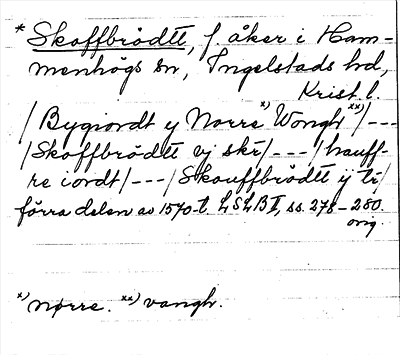 * Skoffbrödtt, f. åker i Ham-
menhögs sn, Ingelstads hd,
Krist. l.
/ Bygiordt y Norre x) Wongh xx) /---
/ Skoffbrödtt vj skr /---/ hauff-
re iordt /---/ Skouffbrödtt ij tr /
förra delen av 1570-t. LSLB II, ss. 278-280.
orig.
x) nørre. xx) vangh.